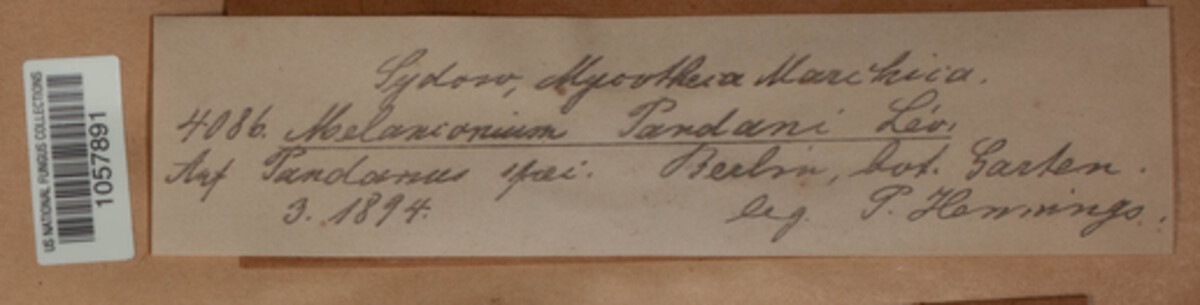 Sydow, Mycotheca Marchica.
4086. Melanconium Pandani Lév.
Auf Pandanus spec. Berlin, bot. Garten.
3. 1894. leg. P. Hennings.
US NATIONAL FUNGUS COLLECTIONS
1057891